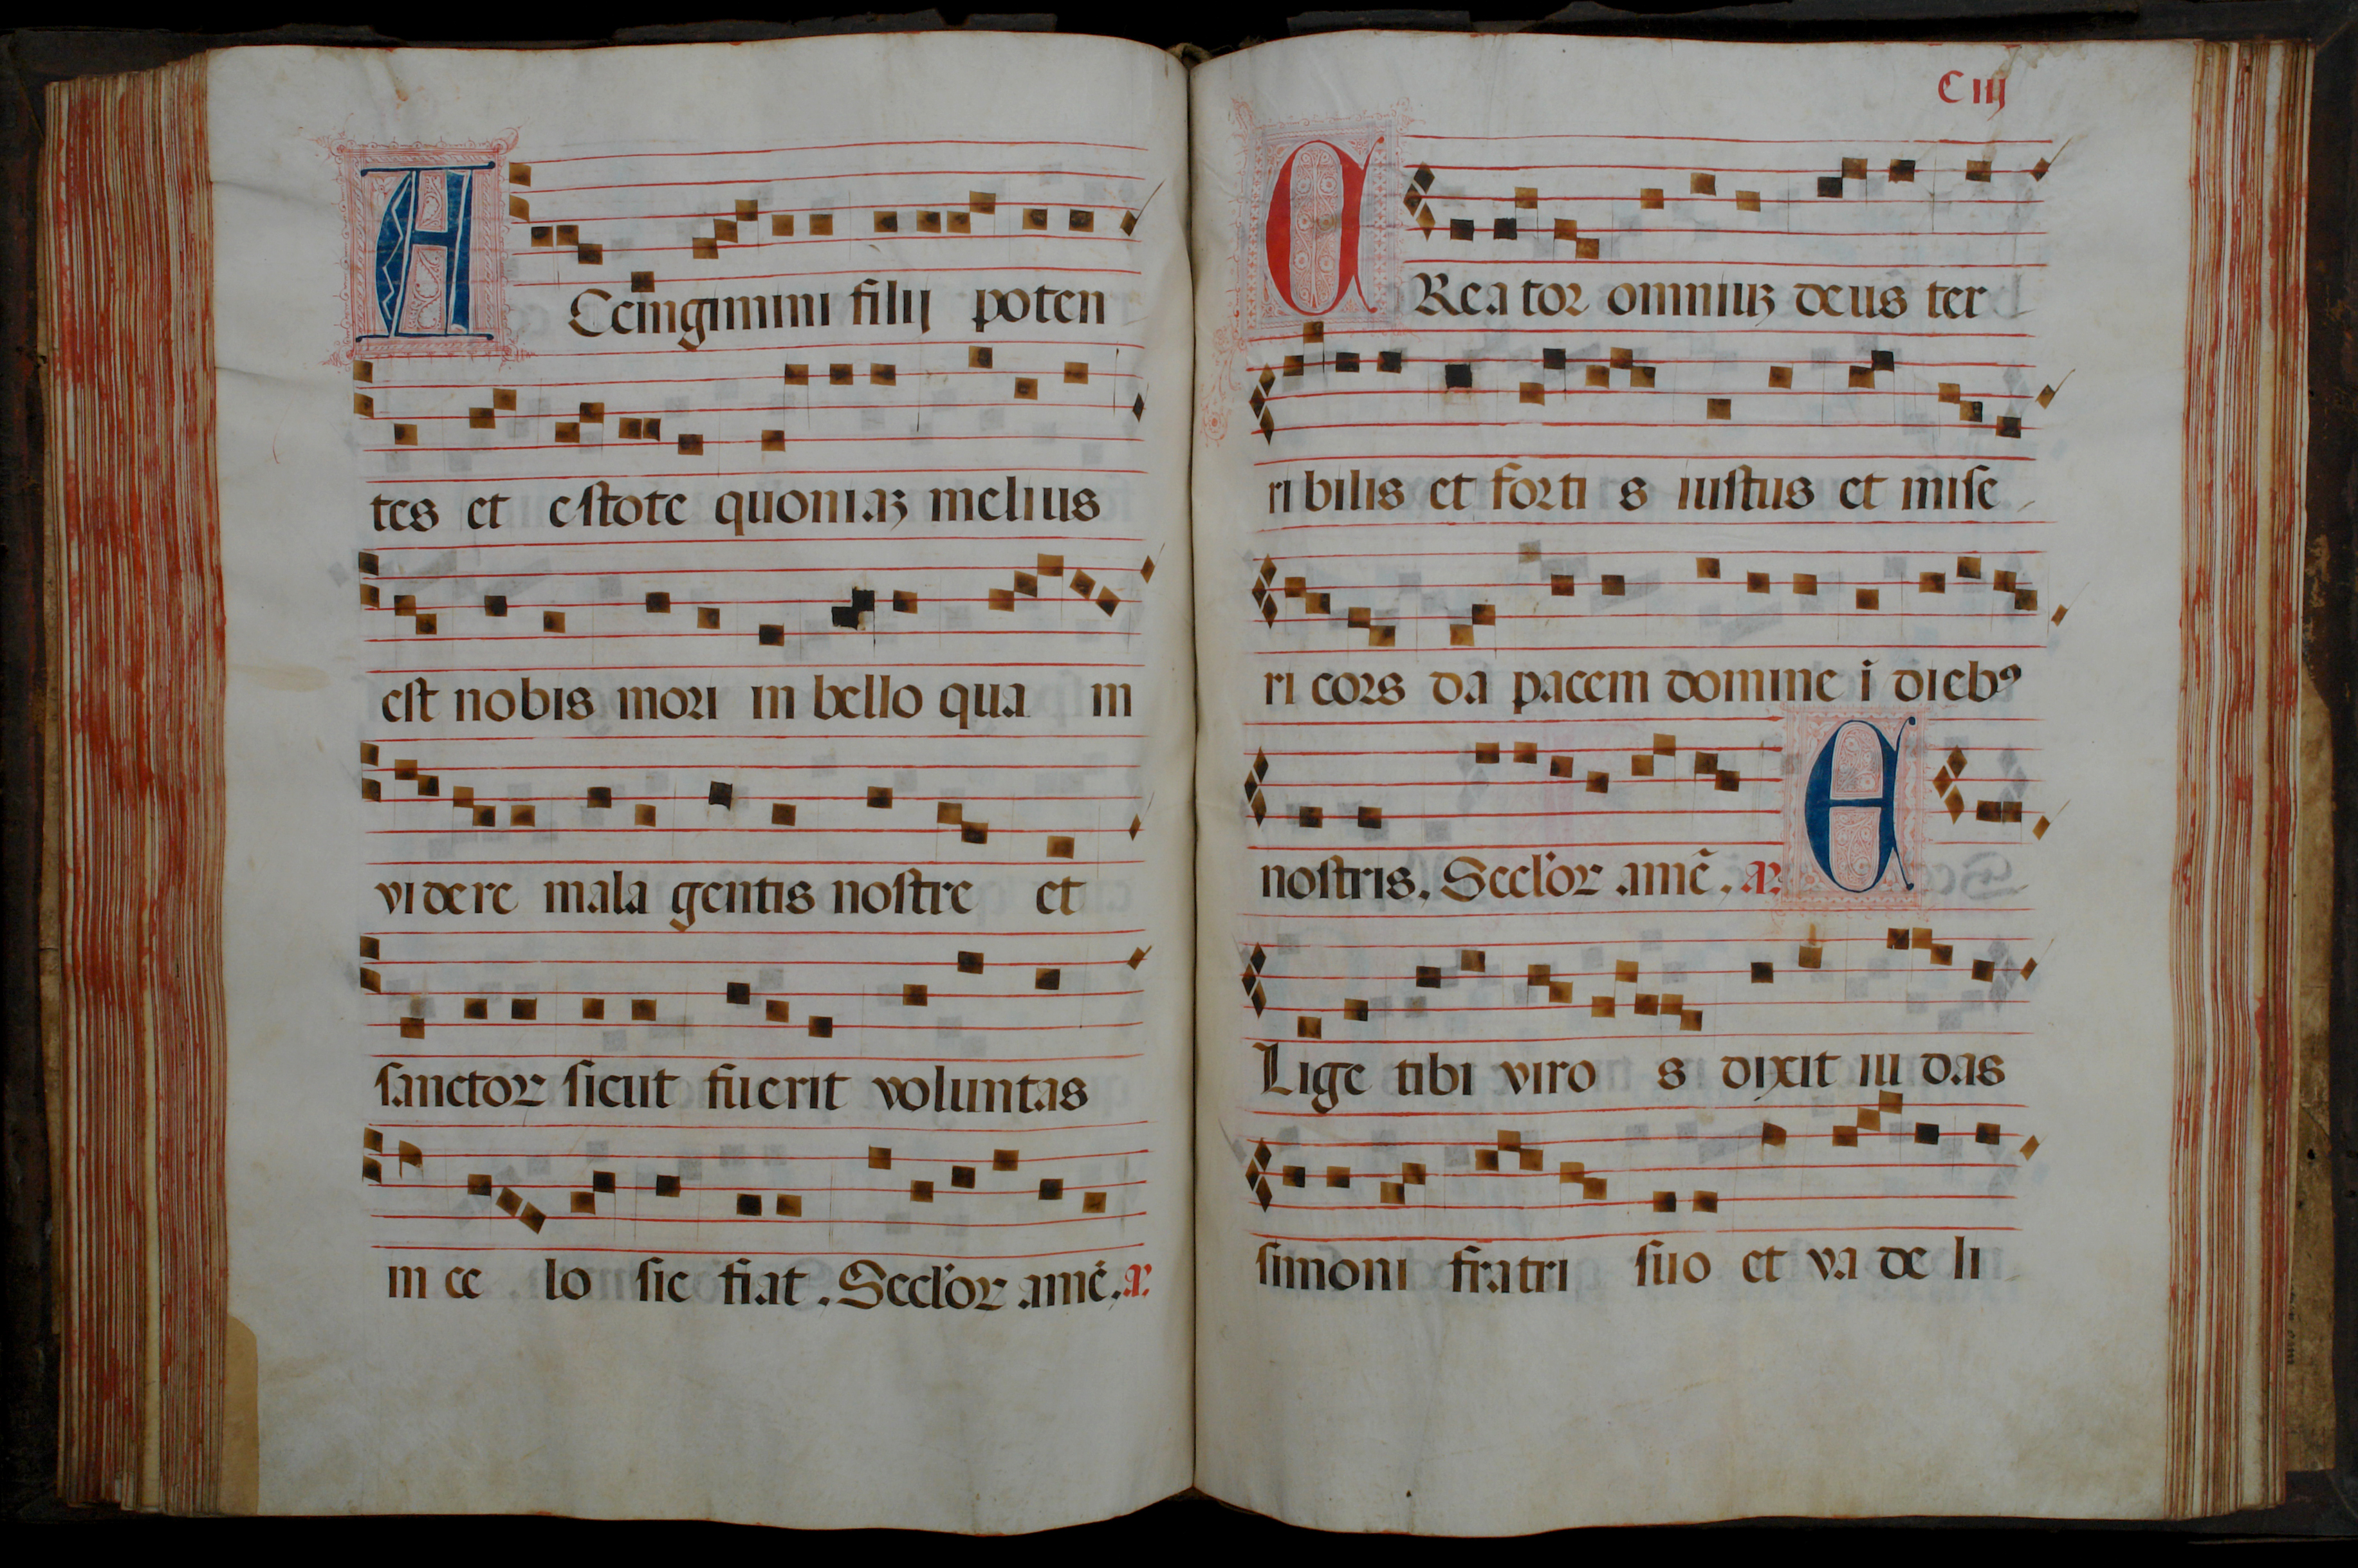 ACcingimini filij poten
tes et estote quoniaꝫ melius
est nobis mori in bello qua m
videre mala gentis nostre et
sanctoꝝ sicut fuerit voluntas
in ce lo sic fiat. Seclˀoꝝ amē. a.
Ciij
CReator omniuꝫ deus ter
ribilis et forti s iustus et mise
ri cors da pacem domine ī diebꝰ
nostris. Seclˀoꝝ amē. a. E
Lige tibi viro s dixit iu das
simoni fratri suo et va de li